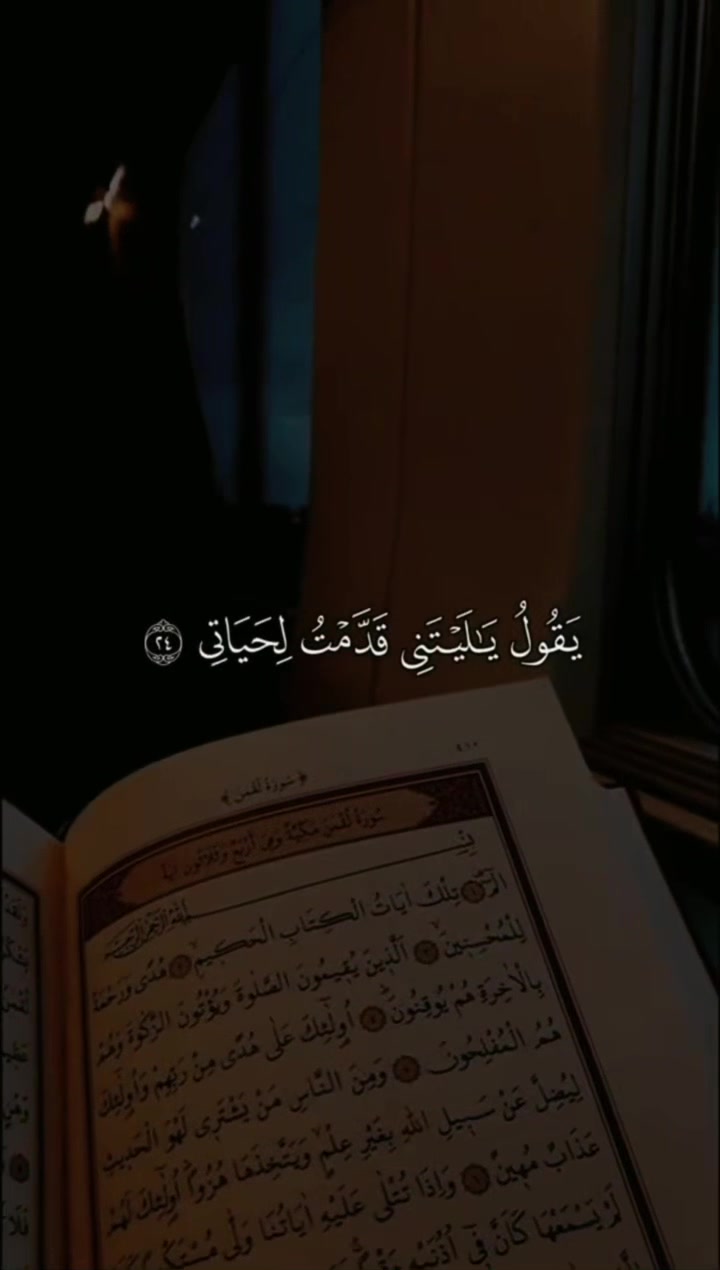 يَقُولُ يَـٰلَيْتَنِى قَدَّمْتُ لِحَيَاتِى ٢٤
﴿سُورَةُ لُقْمٰنَ﴾
سُورَةُ لُقْمٰنَ مَكِّيَّةٌ وَهِيَ اَرْبَعٌ وَثَلَاثُونَ اٰيَةً
بِسْــــمِ اللّٰهِ الرَّحْمٰنِ الرَّحِيمِ
الٓمٓ تِلْكَ اٰيَاتُ الْكِتَابِ الْحَكِيمِ هُدًى وَرَحْمَةً
لِلْمُحْسِنِينَ اَلَّذِينَ يُقِيمُونَ الصَّلٰوةَ وَيُؤْتُونَ الزَّكٰوةَ وَهُمْ
بِالْاٰخِرَةِ هُمْ يُوقِنُونَ اُو۬لٰٓئِكَ عَلٰى هُدًى مِنْ رَبِّهِمْ وَاُو۬لٰٓئِكَ
هُمُ الْمُفْلِحُونَ وَمِنَ النَّاسِ مَنْ يَشْتَرِى لَهْوَ الْحَدِيثِ
لِيُضِلَّ عَنْ سَبِيلِ اللّٰهِ بِغَيْرِ عِلْمٍ وَيَتَّخِذَهَا هُزُوًا اُو۬لٰٓئِكَ لَهُمْ
عَذَابٌ مُهِينٌ وَاِذَا تُتْلٰى عَلَيْهِ اٰيَاتُنَا وَلّٰى مُسْتَكْبِرًا كَاَنْ
لَمْ يَسْمَعْهَا كَاَنَّ فِٓى اُذُنَيْهِ وَقْرًا